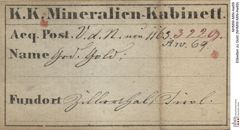 K.K. Mineralien-Kabinett.
Acq. Post. V. d. N. 1163. 3220.
No. 69
Name Ged. Gold.
Fundort Zillerthal, Tirol.